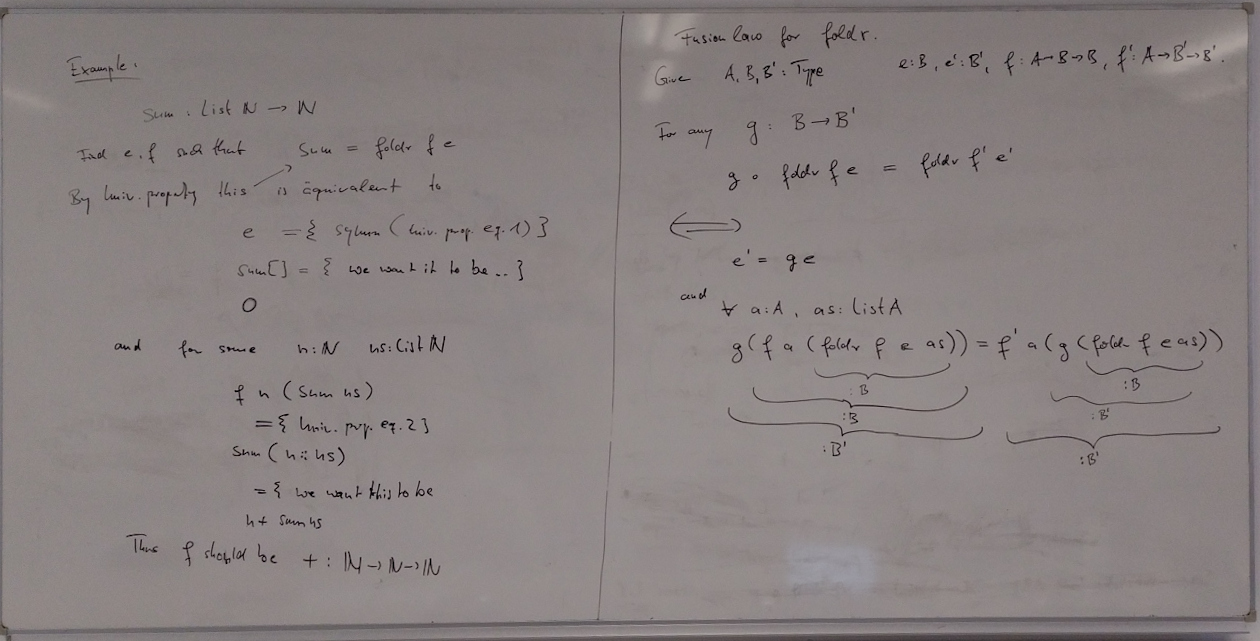 Example:
sum : List ℕ → ℕ
Find e, f such that sum = foldr f e
By Univ. property this is equivalent to
e = { symm (Univ. prop. eq. 1) }
sum [] = { we want it to be .. }
0
and for some n : ℕ ns : List ℕ
f n (sum ns)
= { Univ. prop. eq. 2 }
sum (n :: ns)
= { we want this to be
n + sum ns
Thus f should be + : ℕ → ℕ → ℕ
Fusion law for foldr.
Give A, B, B' : Type e : B, e' : B', f : A → B → B, f' : A → B' → B'.
For any g : B → B'
g ∘ foldr f e = foldr f' e'
⟺
e' = g e
and
∀ a : A, as : List A
g (f a (foldr f e as)) = f' a (g (foldr f e as))
: B : B
: B : B'
: B' : B'